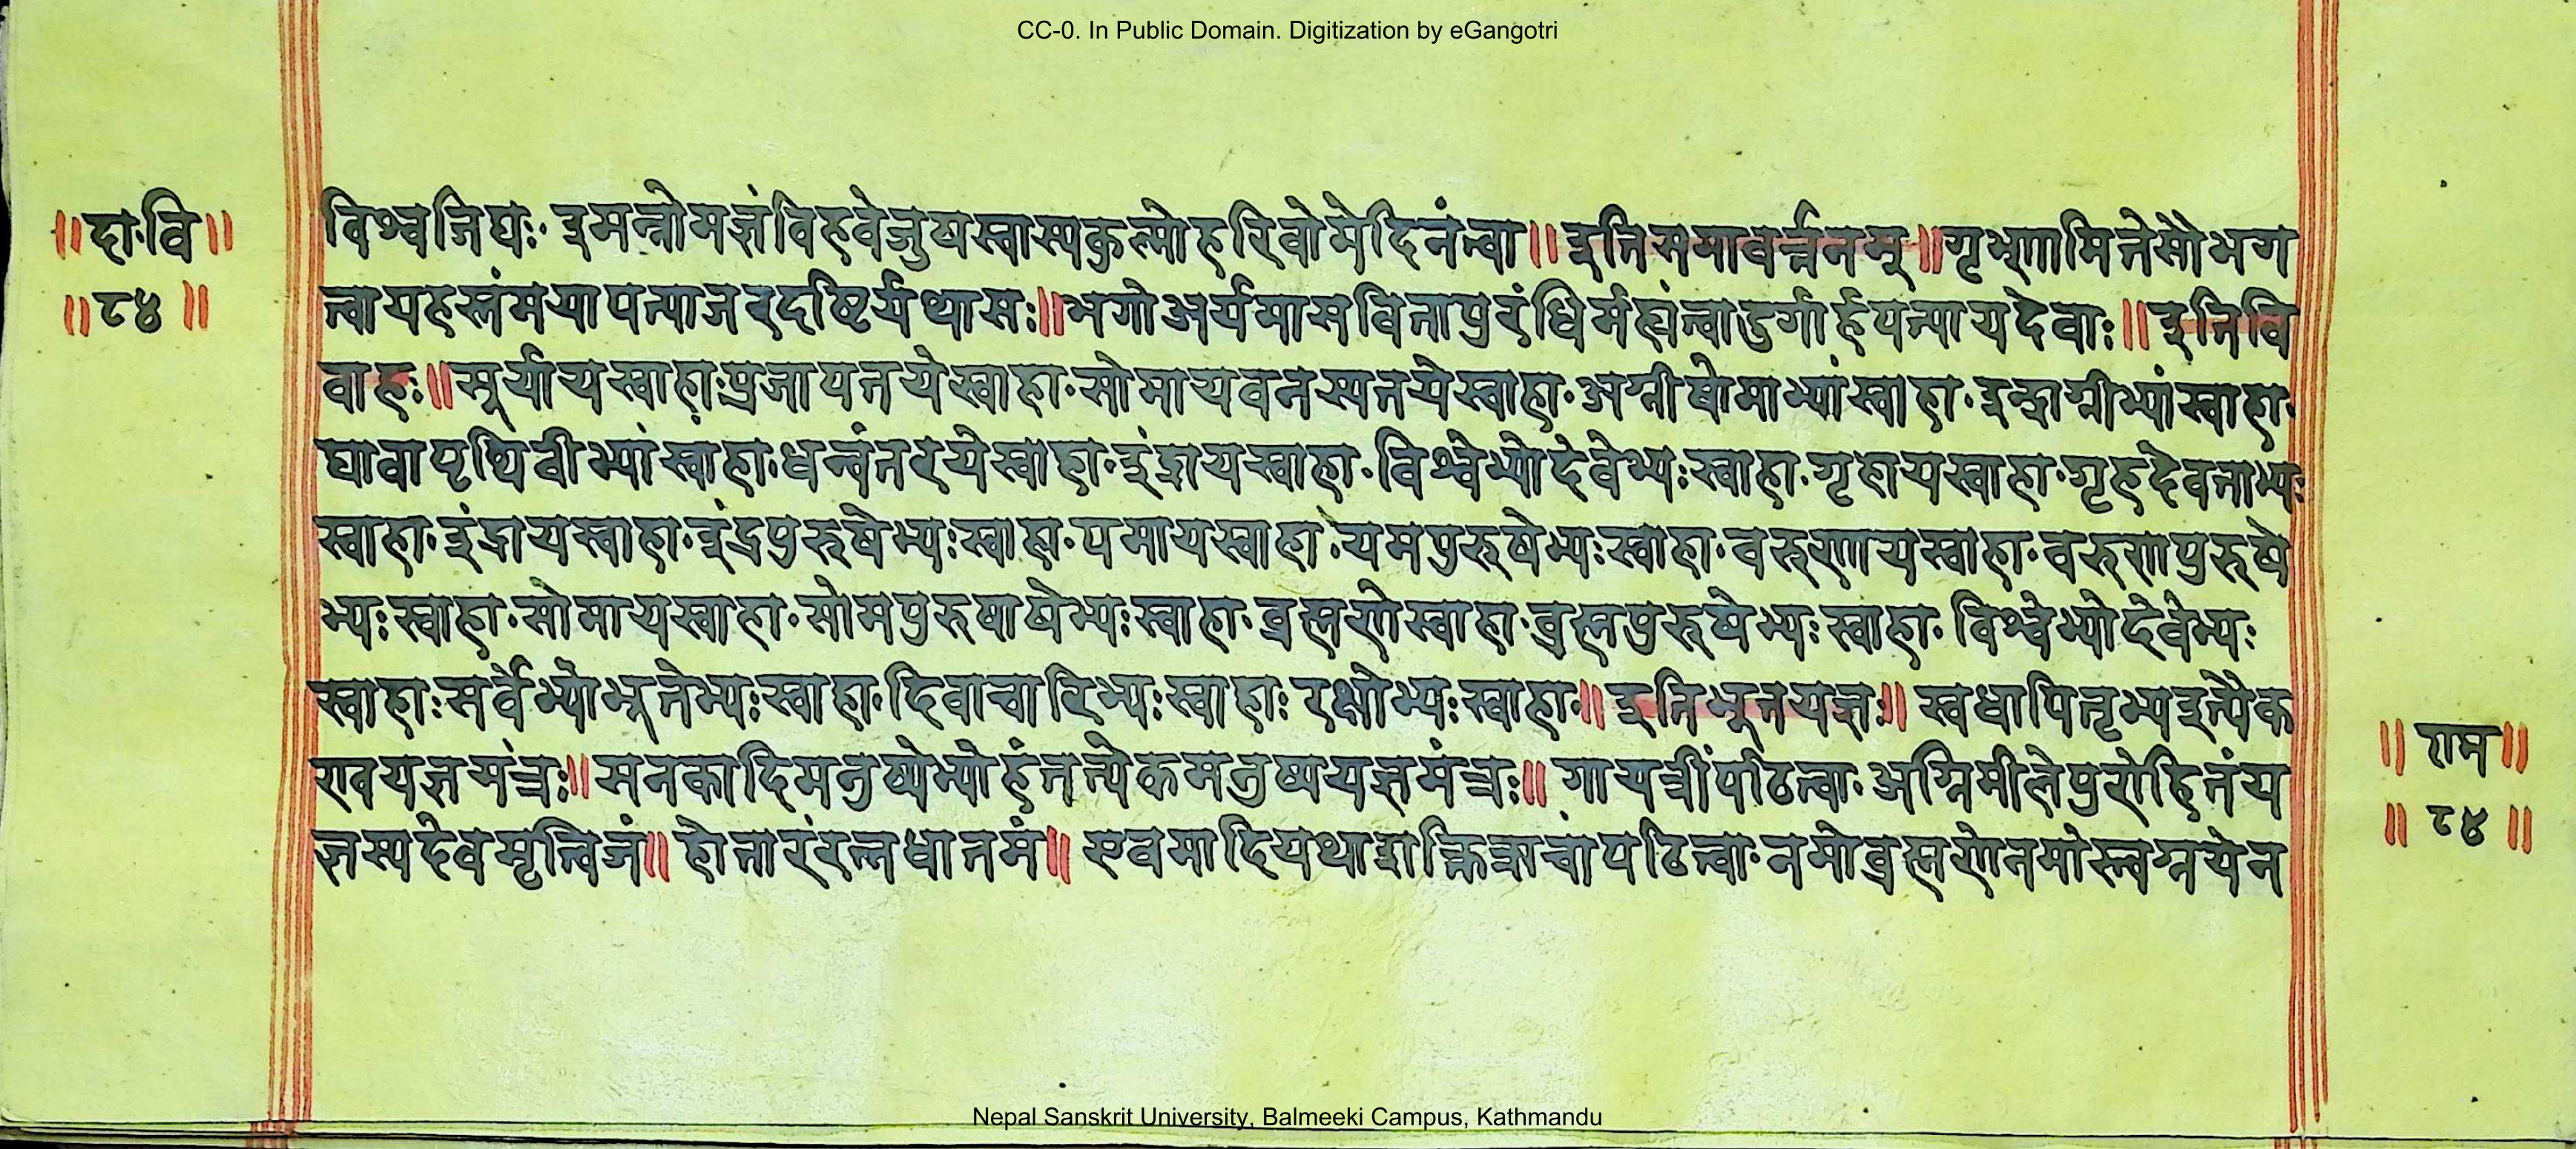 CC-0. In Public Domain. Digitization by eGangotri
॥दा·वि॥
॥८४॥
विश्वजिद्यः· इमन्नोमज्ञंविहवेजुषस्वास्यकुल्मोहरिवोमेदिनंत्वा॥इतिसमावर्त्तनम्॥गृभ्णामितेसौभग
त्वायहस्तंमयापत्याजरदष्टिर्यथासः॥भगोअर्यमासवितापुरंधिर्मह्यंत्वादुर्गार्हपत्यायदेवाः॥इतिवि
वाहः॥सूर्यायस्वाहाःप्रजापतयेस्वाहा·सोमायवनस्पतयेस्वाहा·अग्नीषोमाभ्यांस्वाहा·इन्द्राग्नीभ्यांस्वाहा·
द्यावापृथिवीभ्यांस्वाहा·धन्वंतरयेस्वाहा·इंद्रायस्वाहा·विश्वेभ्योदेवेभ्यःस्वाहा·गृहायस्वाहा·गृहदेवताभ्यः
स्वाहा·इंद्रायस्वाहा·इंद्रपुरूषेभ्यःस्वाहा·यमायस्वाहा·यमपुरुषेभ्यःस्वाहा·वरुणायस्वाहा·वरुणपुरुषे
भ्यःस्वाहा·सोमायस्वाहा·सोमपुरुषाषेभ्यःस्वाहा·ब्रह्मणेस्वाहा·ब्रह्मपुरूषेभ्यःस्वाहा· विश्वेभ्योदेवेभ्यः
स्वाहाःसर्वेभ्योभूतेभ्यःस्वाहा·दिवाचारिभ्यःस्वाहाः रक्षोभ्यःस्वाहा॥इतिभूतयज्ञः॥ स्वधापितृभ्यइत्येक
एवयज्ञमंत्रः॥सनकादिमनुष्येभ्योहंतत्येकमनुष्ययज्ञमंत्रः॥ गायत्रींपठित्वा·अग्निमीलेपुरोहितंय
ज्ञस्यदेवमृत्विजं॥ होतारंरत्नधातमं॥ एवमादियथाशक्तिऋचांपठित्वा·नमोब्रह्मणेनमोस्त्वग्नयेन
॥राम॥
॥८४॥
Nepal Sanskrit University, Balmeeki Campus, Kathmandu